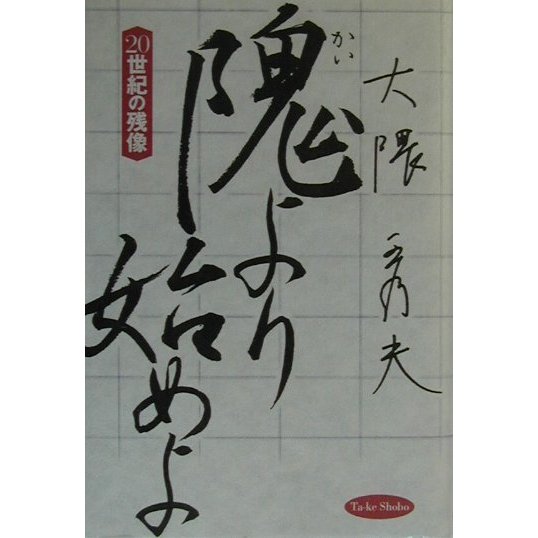 大隈秀夫
隗より
かい
始めよ
20世紀の残像
Ta-ke Shobo